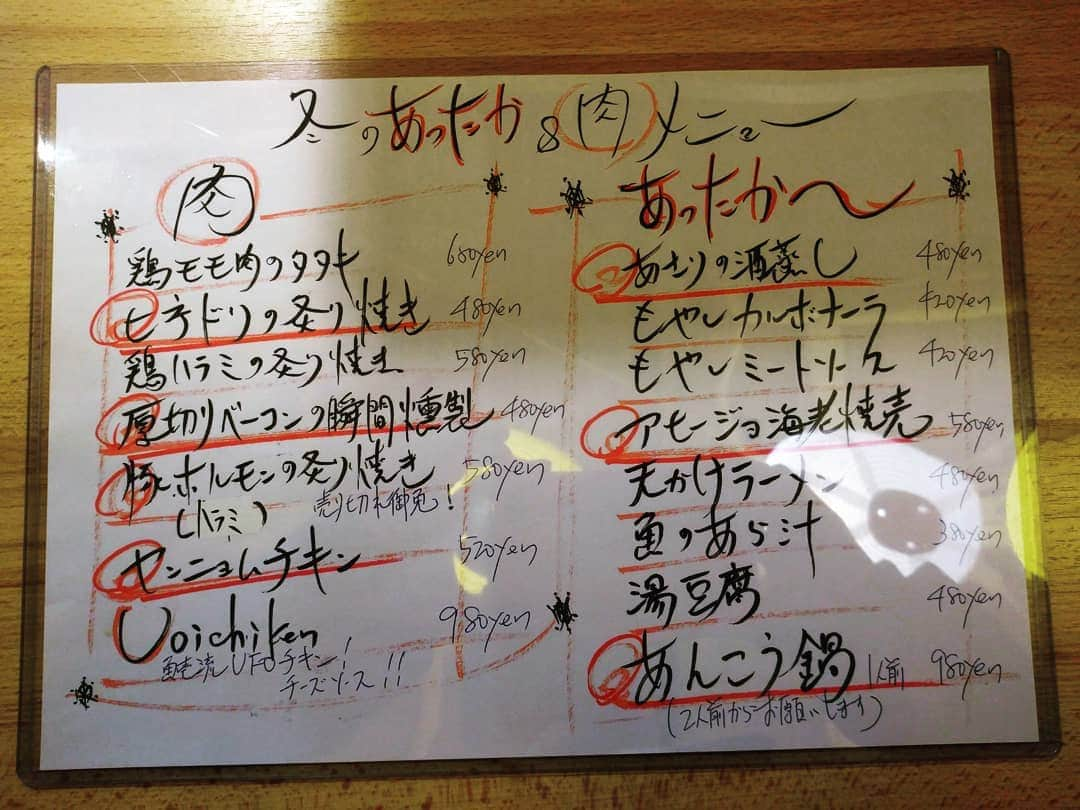 冬のあったか&肉メニュー
肉
鶏モモ肉のタタキ 680yen
セセドリの炙り焼き 480yen
鶏ハラミの炙り焼き 580yen
厚切りベーコンの瞬間燻製 480yen
豚ホルモンの炙り焼き 580yen
(ハラミ) 売り切れ御免っ!
ヤンニョムチキン 520yen
Uoichiken 980yen
流UFOチキン!
チーズソース!!
あったか〜
あさりの酒蒸し 480yen
もやしカルボナーラ 420yen
もやしミートソース 420yen
アヒージョ海老焼売 580yen
天かけラーメン 480yen
魚のあら汁 380yen
湯豆腐 480yen
あんこう鍋 1人前 980yen
(2人前からお願いします)